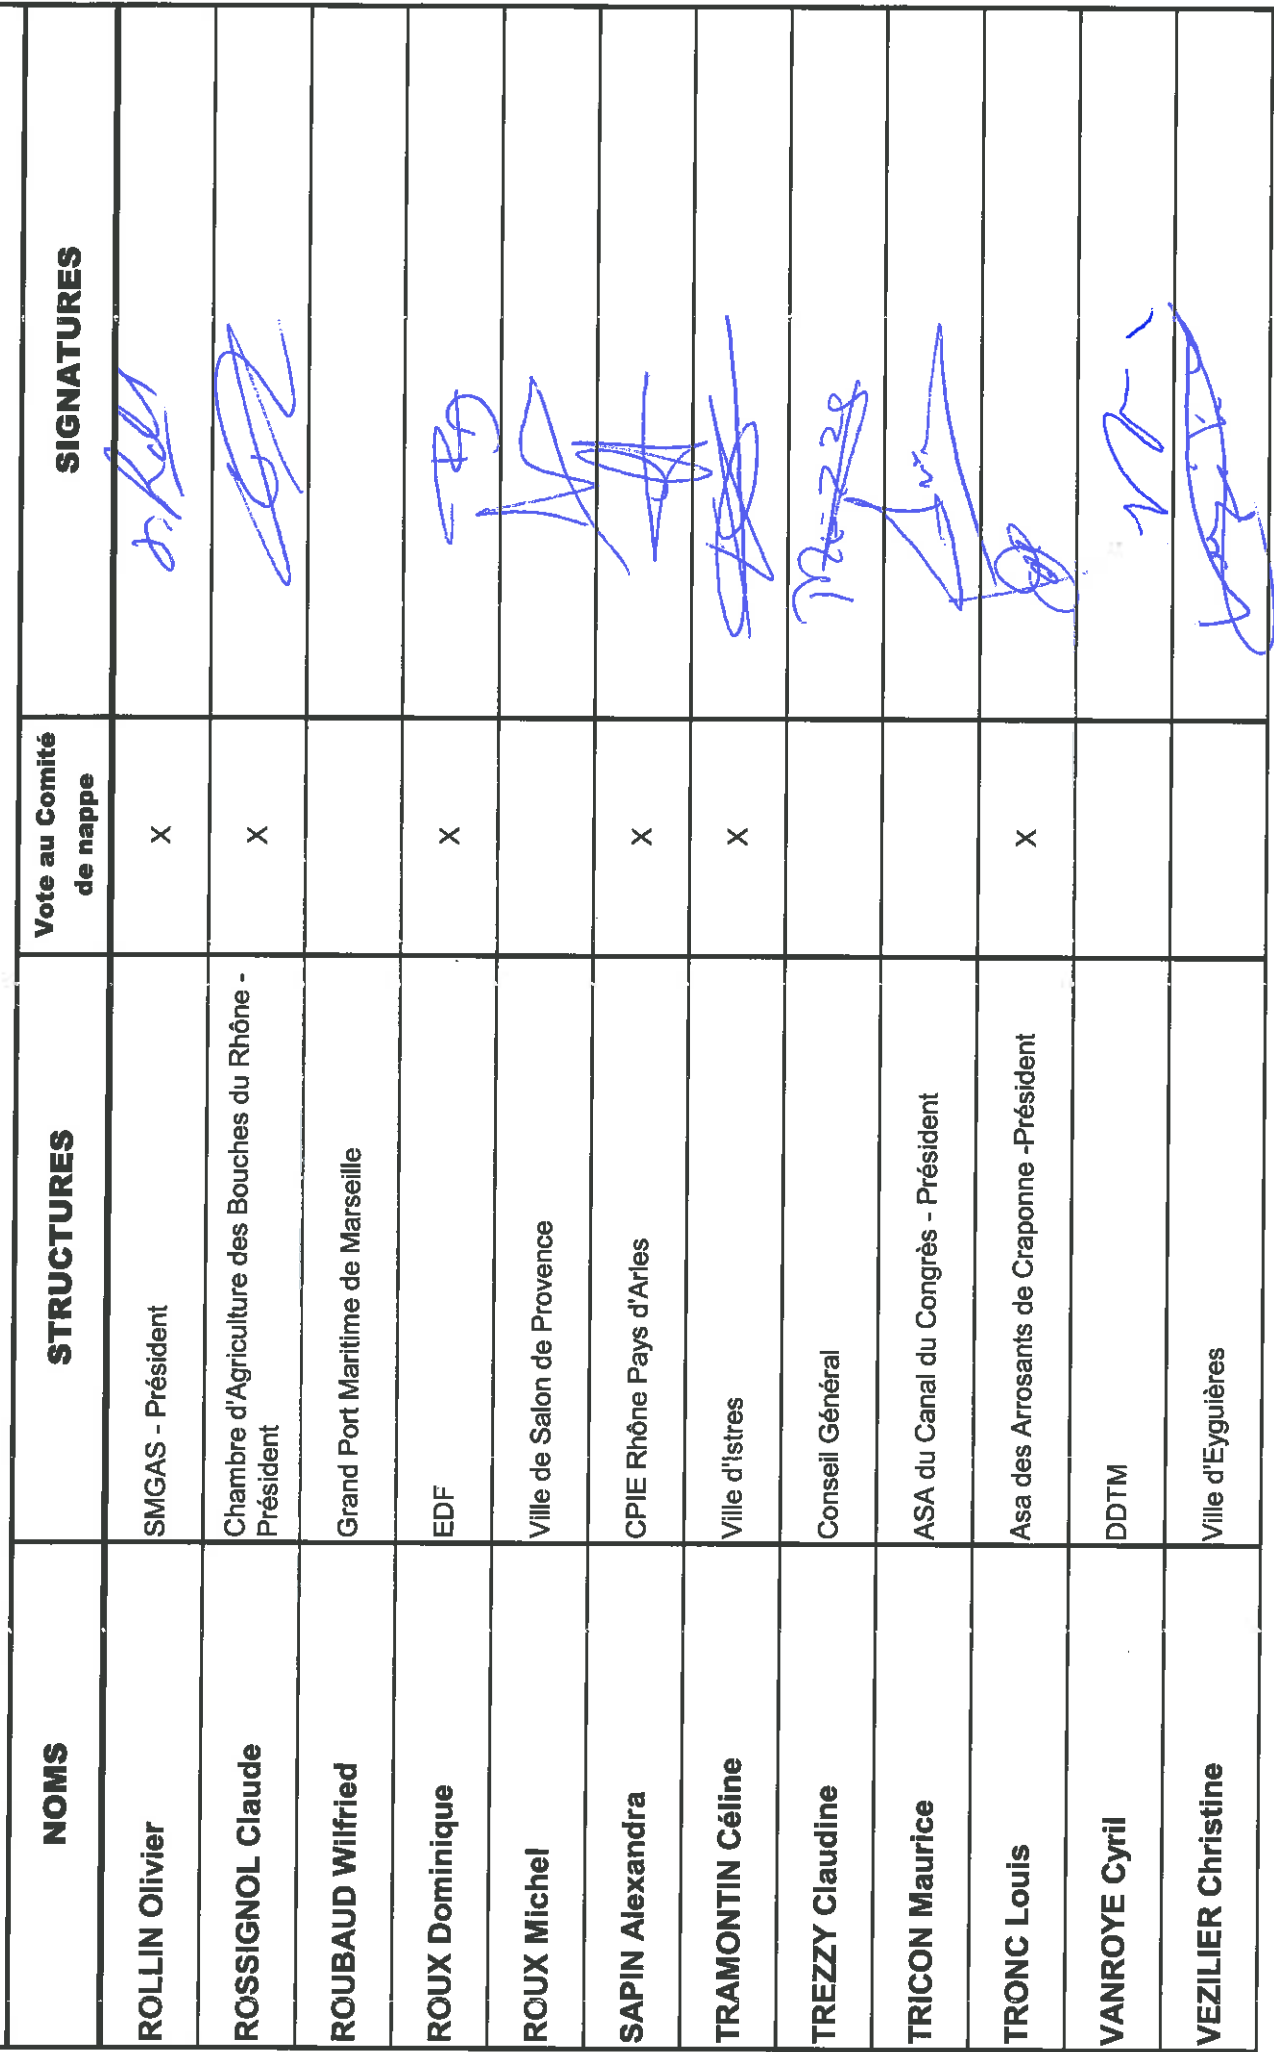 NOMS STRUCTURES Vote au Comité de nappe SIGNATURES
ROLLIN Olivier SMGAS - Président X
ROSSIGNOL Claude Chambre d'Agriculture des Bouches du Rhône -
Président X
ROUBAUD Wilfried Grand Port Maritime de Marseille
ROUX Dominique EDF X
ROUX Michel Ville de Salon de Provence
SAPIN Alexandra CPIE Rhône Pays d'Arles X
TRAMONTIN Céline Ville d'Istres X
TREZZY Claudine Conseil Général
TRICON Maurice ASA du Canal du Congrès - Président
TRONC Louis Asa des Arrosants de Craponne -Président X
VANROYE Cyril DDTM
VEZILIER Christine Ville d'Eyguières